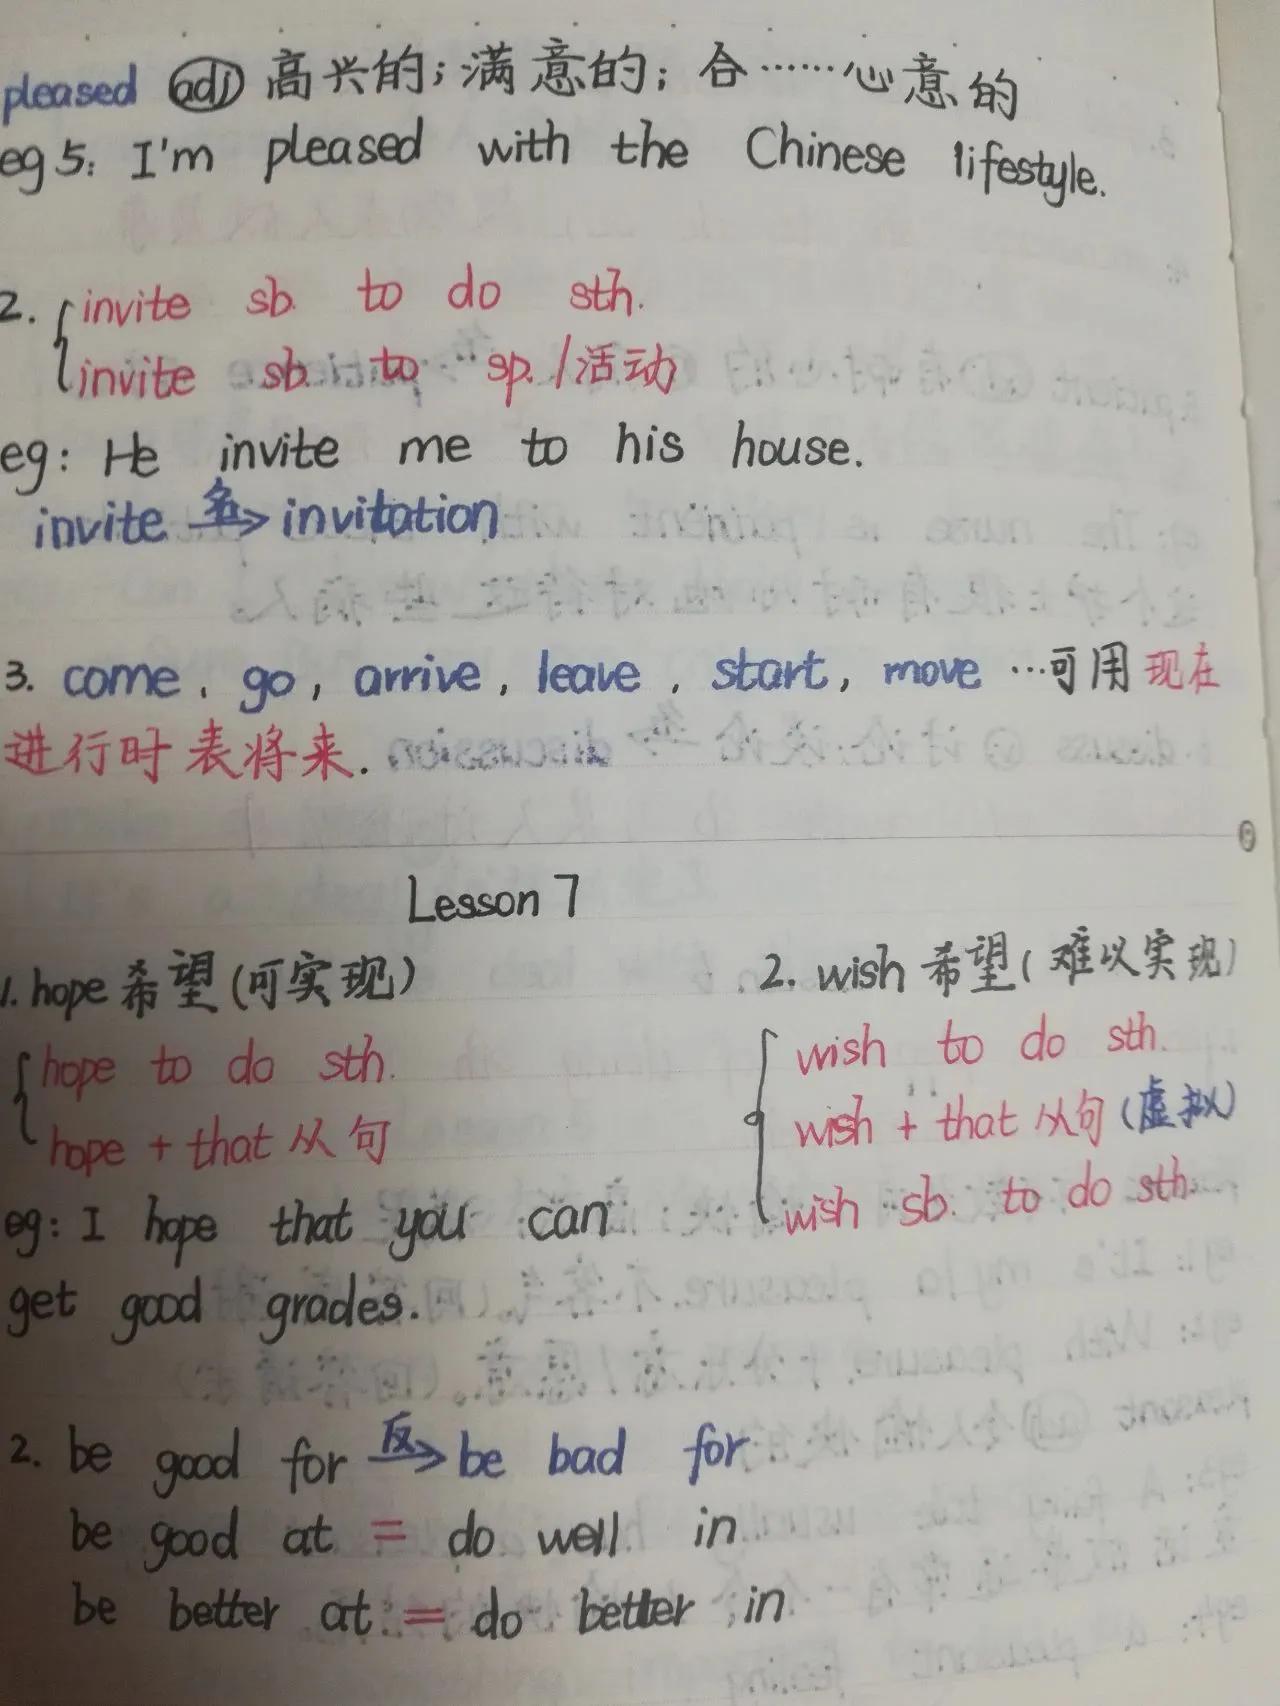 pleased adj 高兴的；满意的；合……心意的
eg5: I'm pleased with the Chinese lifestyle.
2. invite sb. to do sth.
invite sb. to sp. /活动
eg: He invite me to his house.
invite 名→ invitation
3. come, go, arrive, leave, start, move …可用现在
进行时表将来.
Lesson 7
1. hope 希望(可实现)
hope to do sth.
hope + that 从句
eg: I hope that you can
get good grades.
2. wish 希望(难以实现)
wish to do sth.
wish + that 从句(虚拟)
wish sb. to do sth.
2. be good for 反→ be bad for
be good at = do well in
be better at = do better in